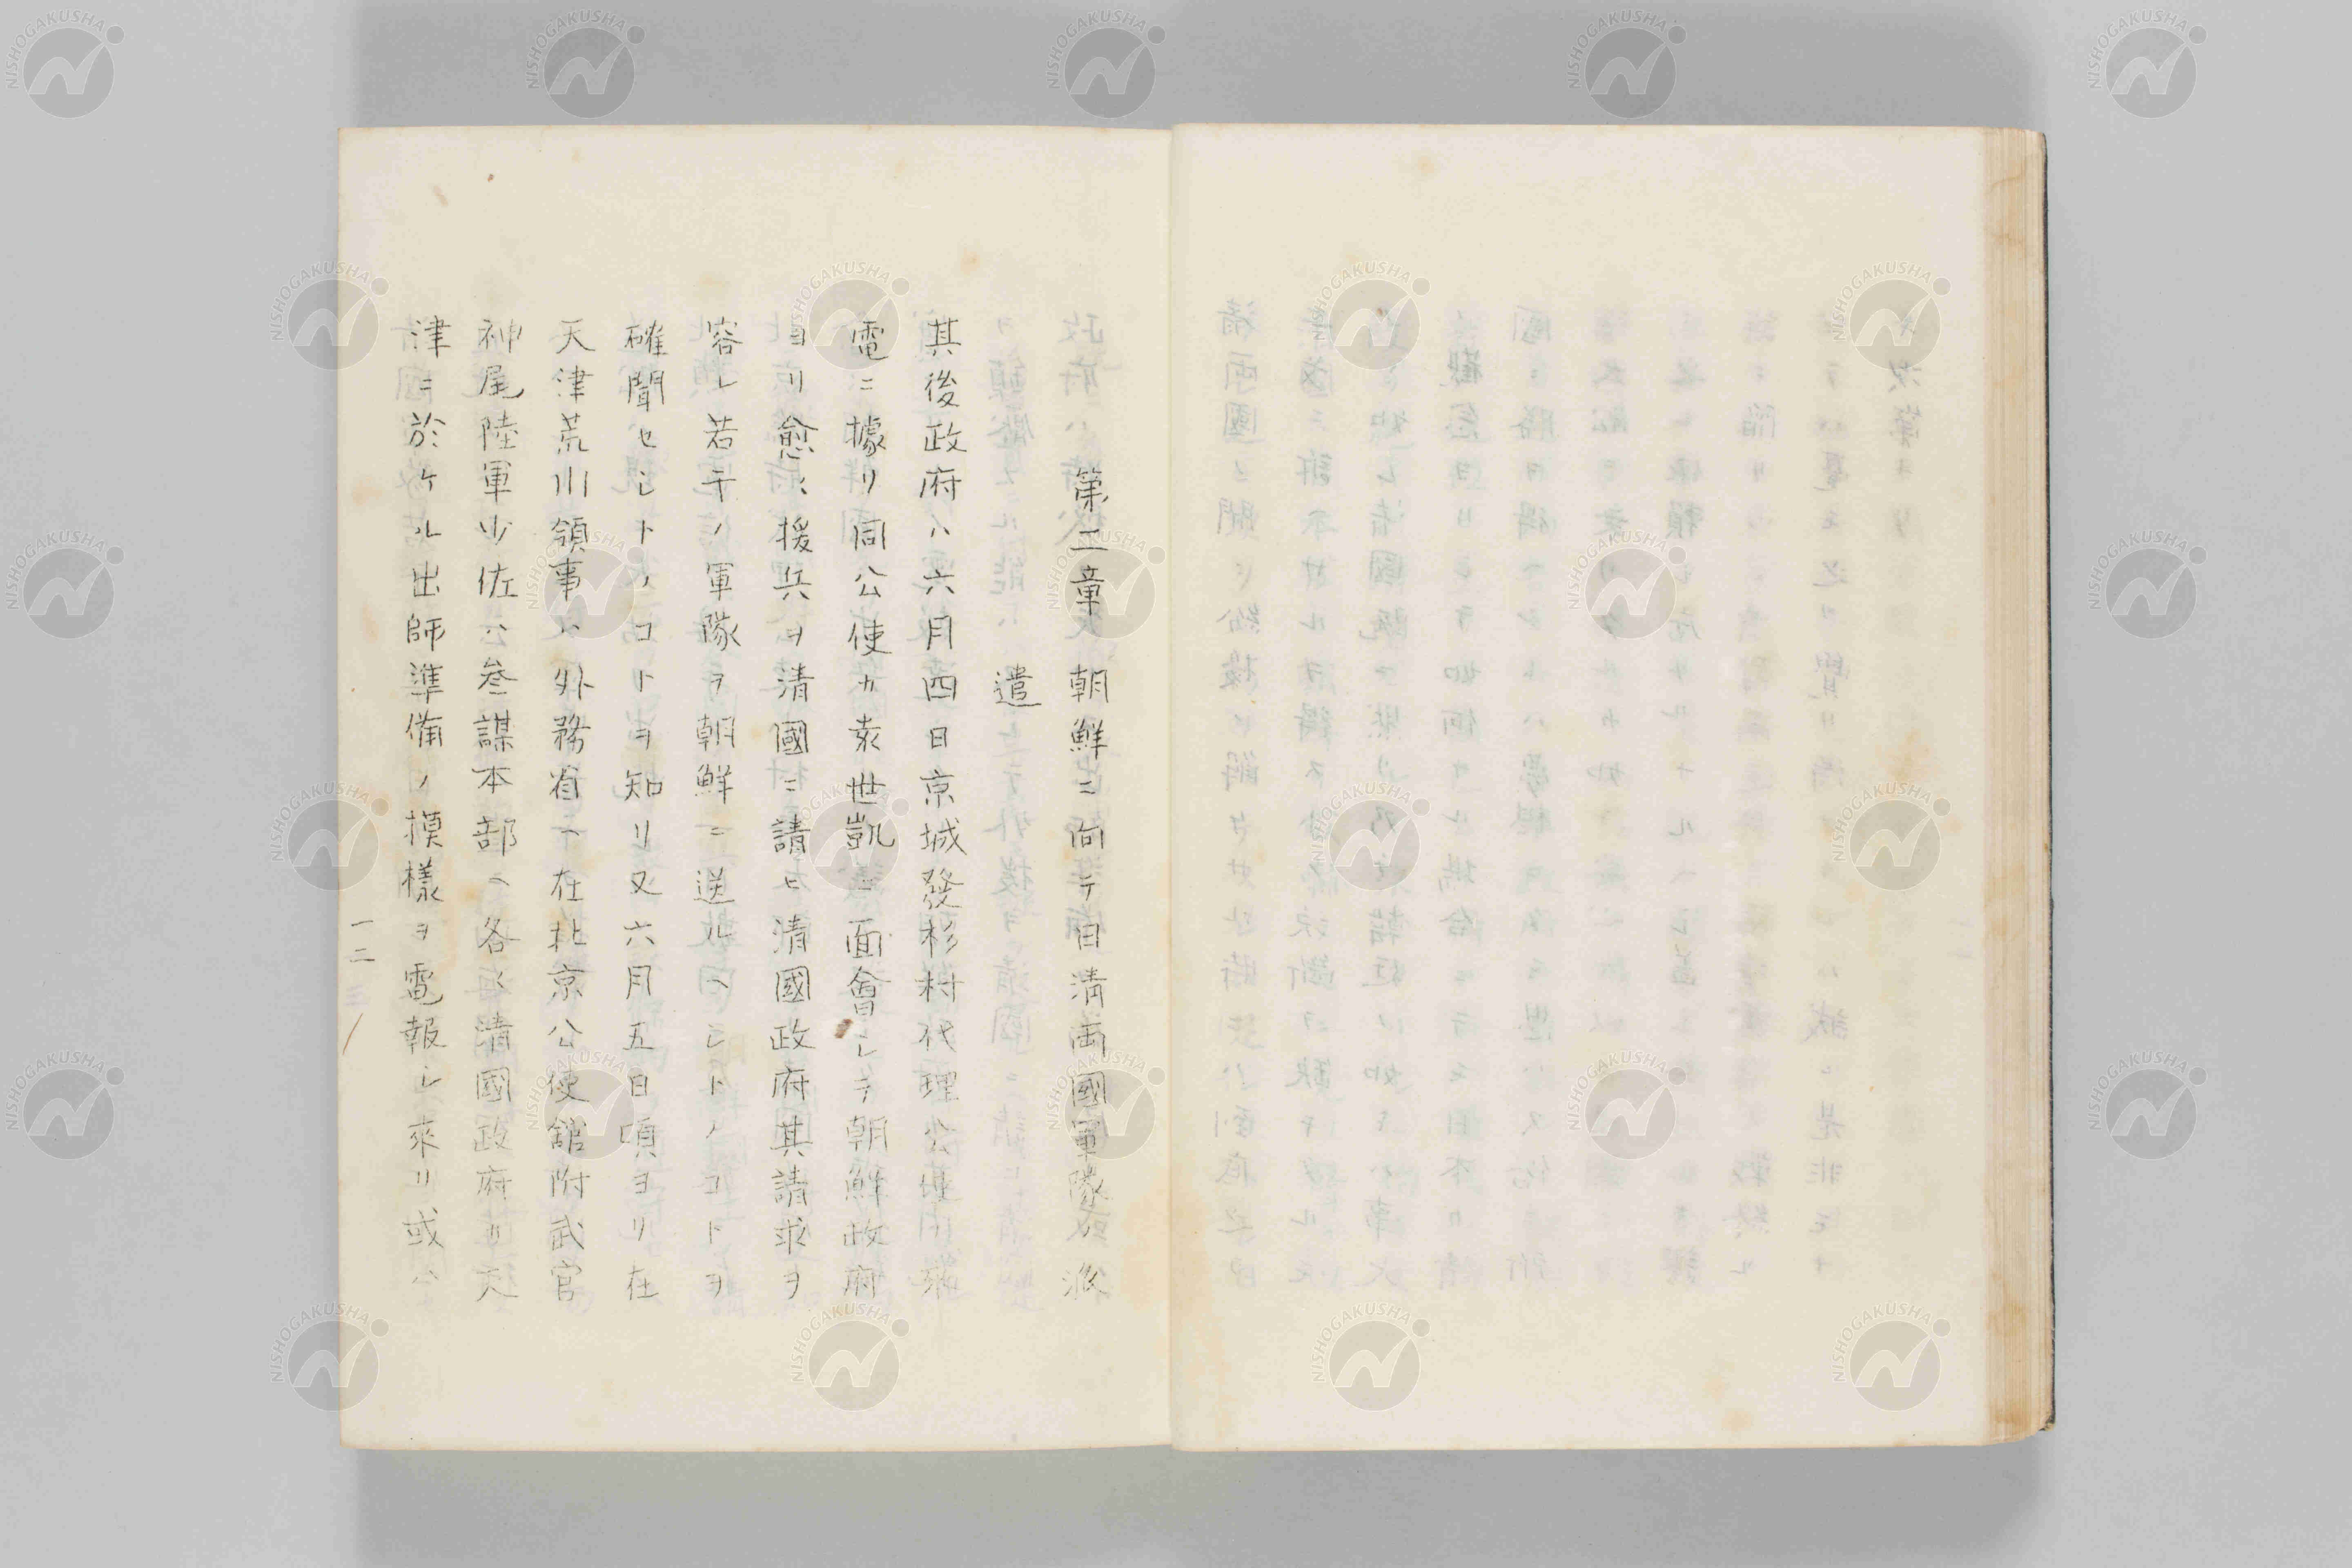 第二章 朝鮮ニ向テ日淸両國軍隊ノ派
遣
其後政府ハ六月四日京城發杉村代理公使ノ來
電ニ據リ同公使カ袁世凱ニ面會シテ朝鮮政府
ヨリ愈〻援兵ヲ清國ニ請ヒ清國政府其請求ヲ
容レ若干ノ軍隊ヲ朝鮮ニ送ルヘシトノコトヲ
確聞セシトノコトヲ知リ又六月五日頃ヨリ在
天津荒川領事ハ外務省ヘ在北京公使舘附武官
神尾陸軍少佐ハ叅謀本部ヘ各〻清國政府カ天
津ニ於ケル出師準備ノ摸樣ヲ電報シ來リ或ハ
一二
NISHOGAKUSHA